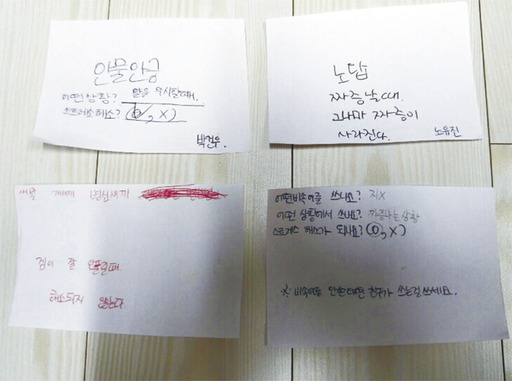 안물안금
어떤상황? 말을 무시할때.
스트레스해소? (O, X)
박건우.
노답
짜증날때.
그나마 짜증이
사라진다.
노유진
게새끼 병신새끼
잘 안풀릴때
해소되지 않는다
어떤비속어를 쓰나요? 지X
어떤 상황에서 쓰나요? 짜증나는상황
스트레스 해소가 되나요? (O, X)
※ 비속어를 안쓴다면 친구가 쓰는걸 쓰세요.